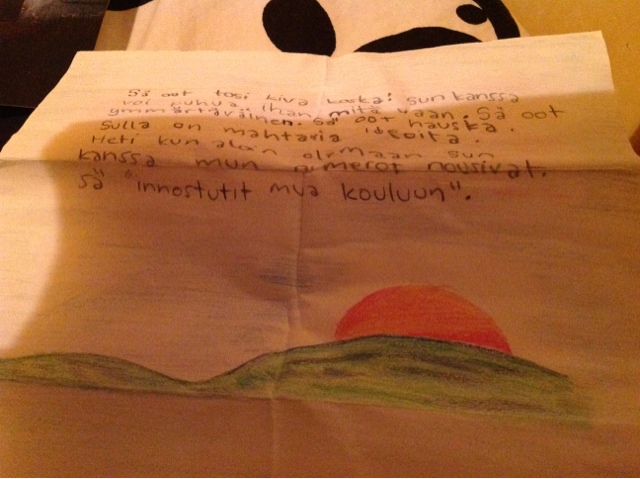 Sä oot tosi kiva koska: sun kanssa
voi puhua ihan mitä vaan. Sä oot
ymmärtäväinen. Sä oot hauska.
Sulla on mahtavia ideoita.
Heti kun aloin olemaan sun
kanssa mun numerot nousivat.
Sä "innostutit mua kouluun".